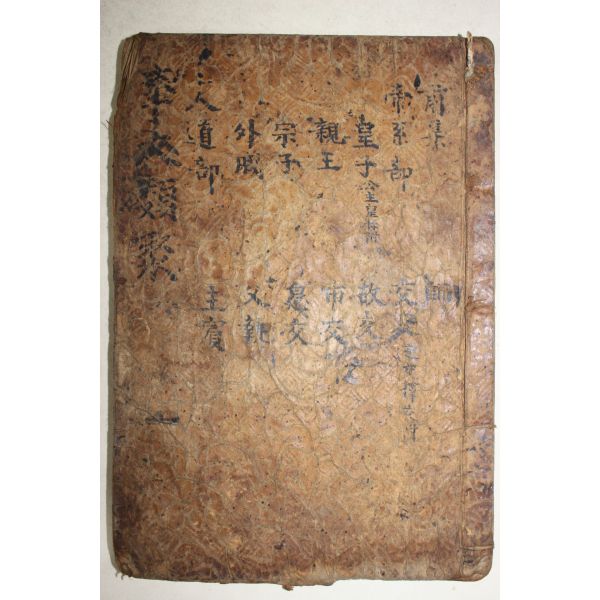 事文類聚 一
前集
帝系部
皇子
親王
宗子
外戚
人道部
師
交友
故交
市交
息交
父執
主賓